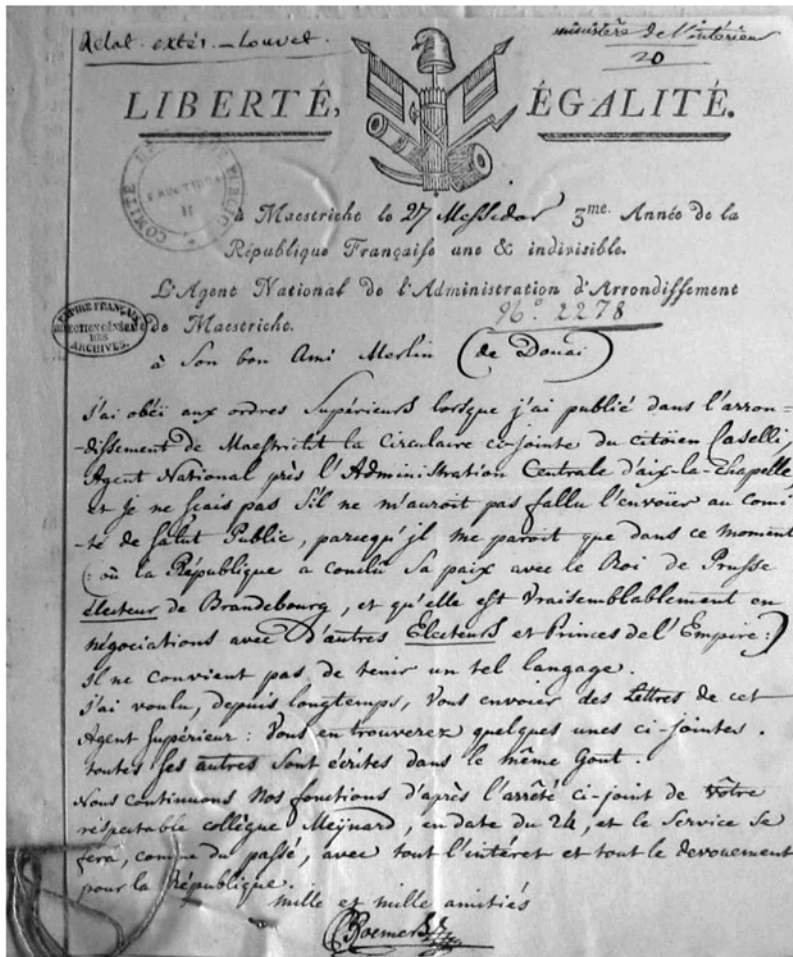 Relat. extér. _ Louvet.
ministère de l'intérieur
20
LIBERTÉ, ÉGALITÉ.
COMITÉ PUBLIC
à Maestricht le 27 Messidor 3me. Année de la
République Françaiſe une & indiviſible.
L'Agent National de l'Adminiſtration d'Arrondiſſement
N.º 2278
de Maestricht.
EMPIRE FRANÇAIS
DIRECTION GÉNÉRALE
DES
ARCHIVES.
à Son bon Ami Merlin (de Douai)
J'ai obéi aux ordres Supérieurs lorsque j'ai publié dans l'arron-
-dissement de Maestricht la Circulaire ci-jointe du citöien Caselli,
Agent National près l'Administration Centrale d'aix-la-Chapelle,
et Je ne sçais pas S'il ne m'auroit pas fallu l'envoïer au comi
-té de Salut Public, parcequ'jl me paroit que dans ce moment
(: où la République a conclû Sa paix avec le Roi de Prusse
électeur de Brandebourg, et qu'elle est Vraisemblablement en
négociations avec D'autres Electeurs et Princes de l'Empire:)
il ne convient pas de tenir un tel langage.
J'ai voulu, depuis longtemps, Vous envoïer des Lettres de cet
Agent Supérieur: Vous en trouverez quelques unes ci-jointes.
toutes ses autres Sont écrites dans le même Gout.
Nous continuons Nos fonctions d'après l'arrêté ci-joint de Vôtre
respectable collègue Meÿnard, en date du 24, et le Service Se
fera, comme du passé, avec tout l'intéret et tout le devouement
pour la République.
mille et mille amitiés
Roemers